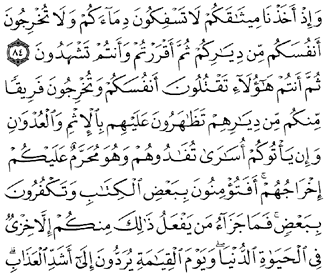 وَإِذْ أَخَذْنَا مِيثَاقَكُمْ لَا تَسْفِكُونَ دِمَاءَكُمْ وَلَا تُخْرِجُونَ
أَنفُسَكُم مِّن دِيَارِكُمْ ثُمَّ أَقْرَرْتُمْ وَأَنتُمْ تَشْهَدُونَ ٨٤
ثُمَّ أَنتُمْ هَٰؤُلَاءِ تَقْتُلُونَ أَنفُسَكُمْ وَتُخْرِجُونَ فَرِيقًا
مِّنكُم مِّن دِيَارِهِمْ تَظَاهَرُونَ عَلَيْهِم بِالْإِثْمِ وَالْعُدْوَانِ
وَإِن يَأْتُوكُمْ أُسَارَىٰ تُفَادُوهُمْ وَهُوَ مُحَرَّمٌ عَلَيْكُمْ
إِخْرَاجُهُمْ ۚ أَفَتُؤْمِنُونَ بِبَعْضِ الْكِتَابِ وَتَكْفُرُونَ
بِبَعْضٍ ۚ فَمَا جَزَاءُ مَن يَفْعَلُ ذَٰلِكَ مِنكُمْ إِلَّا خِزْيٌ
فِي الْحَيَاةِ الدُّنْيَا ۖ وَيَوْمَ الْقِيَامَةِ يُرَدُّونَ إِلَىٰ أَشَدِّ الْعَذَابِ ۗ